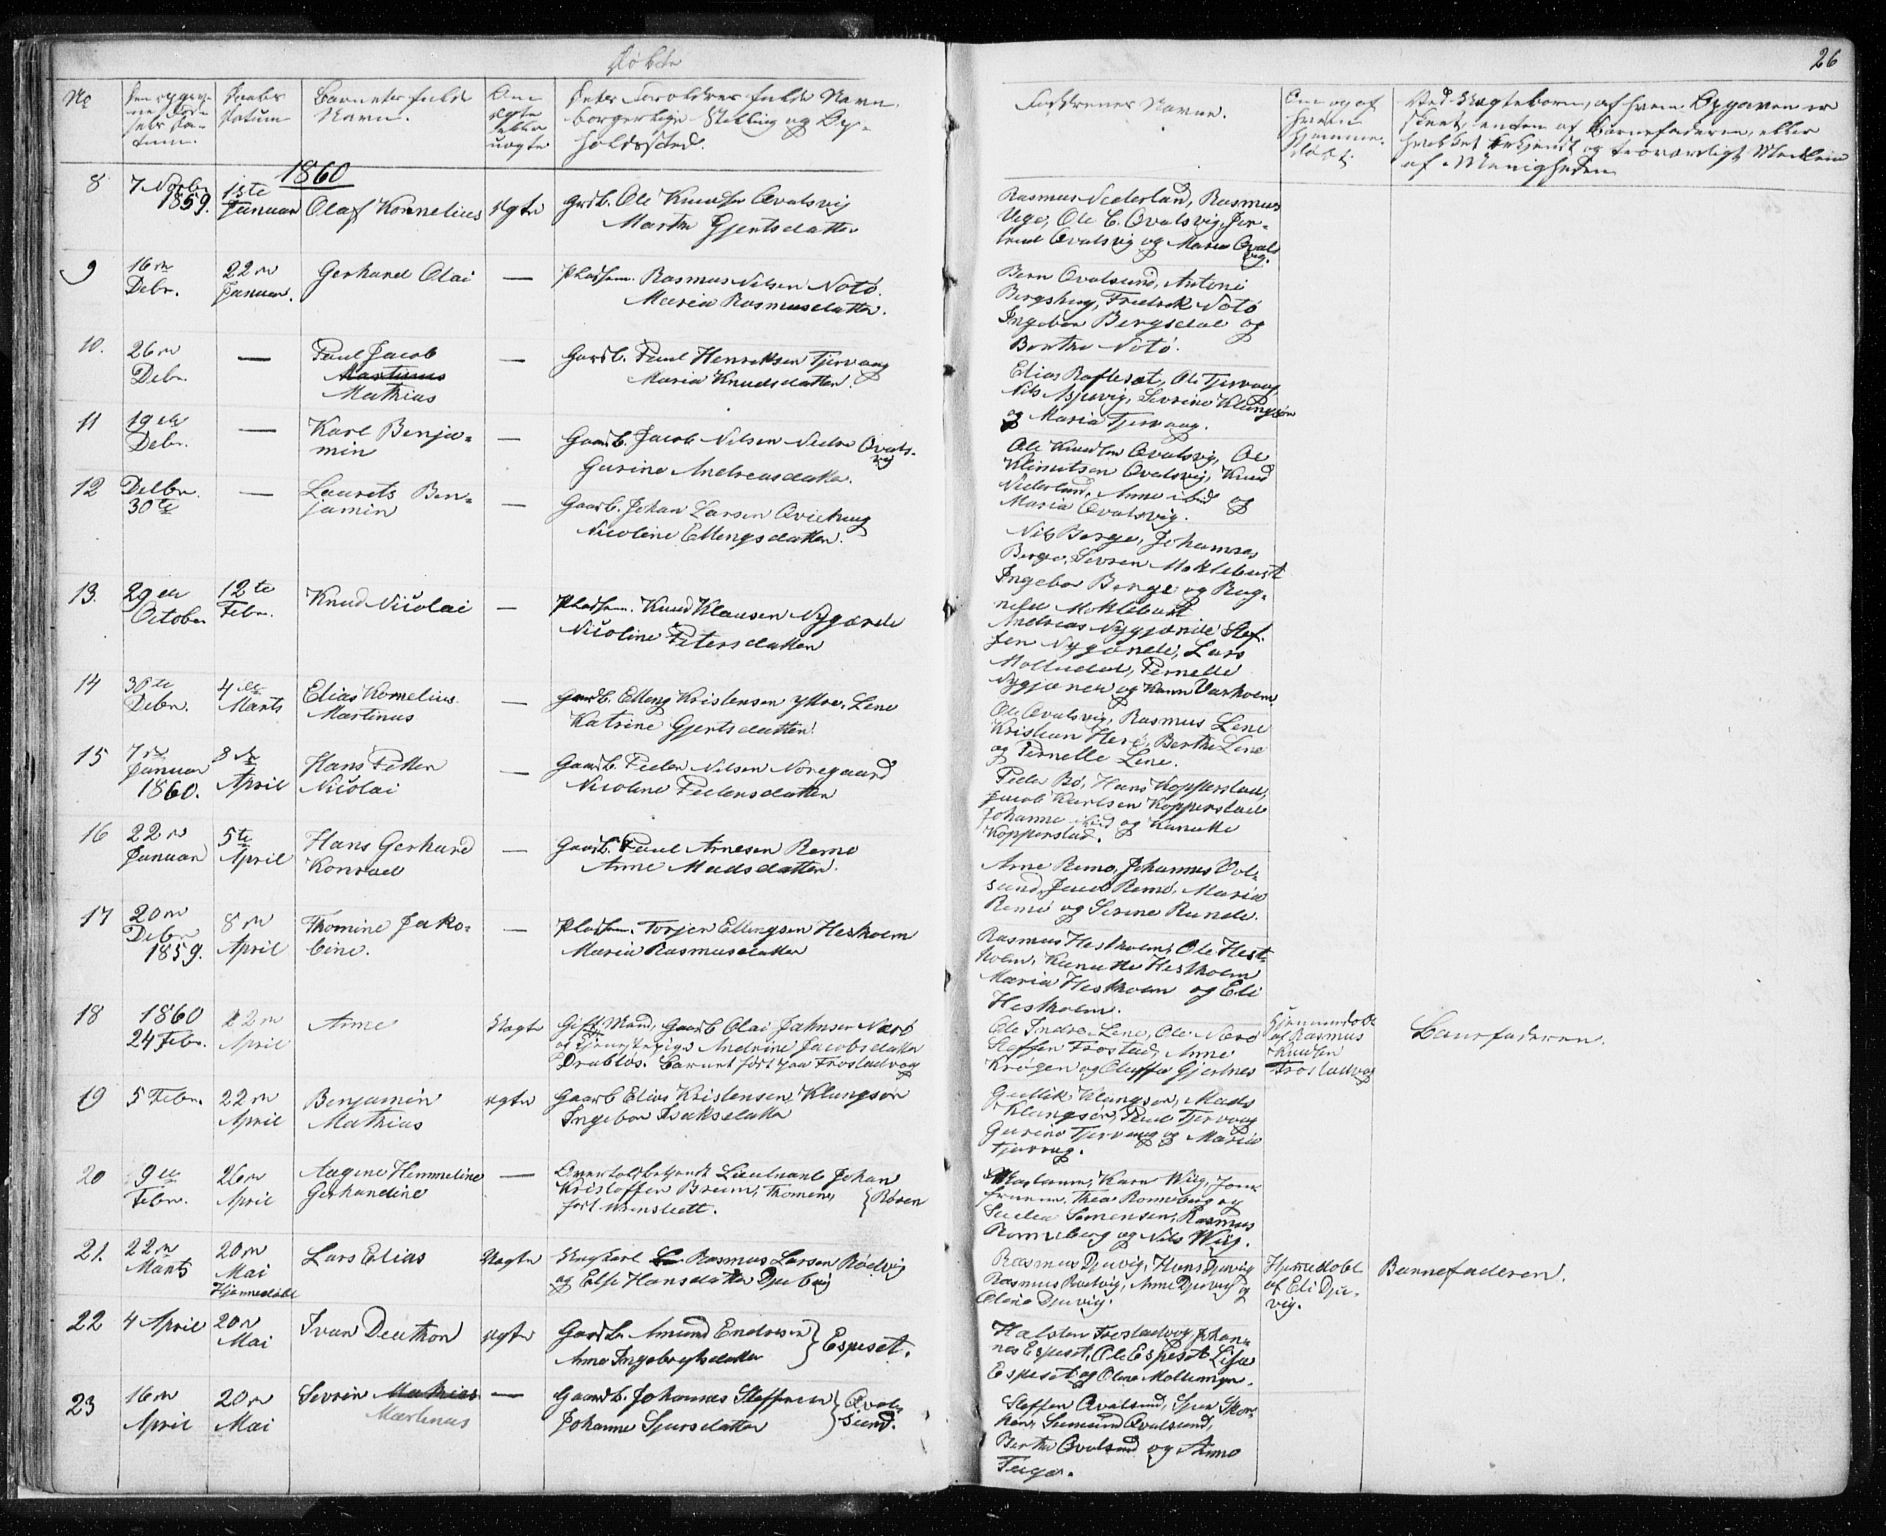 Døbte
26
No
Barnets fulde
Navn.
Deres Forældres fulde Navn,
borgerlige Stilling og Op-
holdssted.
Faddrenes Navne.
1860
8
7 Novbr
1859.
1ste
Januar
Olaf Kornelius
ægte
Gbrd. Ole Knudsen Qvalsvig
Marthe Gjertsdatter
Rasmus Nederland, Rasmus
Ole C. Qvalsvig, Jer-
trud Qvalsvig og Maria Qvals
vig.
9
16de
Debr.
22de
Januar.
Gerhard Olai
—
Pladsem. Rasmus Nilsen Notø.
Maria Rasmusdatter.
Bern Qvalsund, Antoni
Bergsberg, Fredrik Notø
Ingebor Bergsdal og
Berthe Notø.
10.
26de
Debr.
—
Paul Jacob
Martinus
Mathias
—
Gaardb. Paul Henriksen Tjervaag
Maria Knudsdatter.
Elias Roftesæt, Ole Tjervaag
Nils Djuvig, Sevrine Klungsør
og Maria Tjervaag.
11
19de
Debr.
—
Karl Benja-
min
—
Gaardb. Jacob Nilsen Nedre Qvals-
vig
Gurine Andreasdatter.
Ole Knudsen Qvalsvig, Ole
Klemetsen Qvalsvig, Knud
Nederland, Anne ibid og
Maria Qvalsvig.
12
Decbr.
30te
—
Laurits Ben-
jamin
—
Gaardb. Johan Larsen Qviehaug
Nicoline Ellingsdatter.
Nils Berge, Johannes
Berge, Sevren Moklebust
Ingebor Berge og Rag-
nild Moklebust
13.
29de
October
12te
Febr.
Knud Nicolai
—
Pladsem. Knud Klausen Nygjærde
Nicoline Petersdatter
Andreas Nygjærde, Stef-
fen Nygjærde, Lars
Molludal, Pernelle
Nygjærde og Karen Varholm
14
30te
Debr.
4de
Marts
Elias Kornelius
Martinus
—
Gaardb. Elling Kristensen Yttre-Lene
Katrine Gjertsdatter
Ole Qvalsvig, Rasmus Lene
Kristian Herø, Berthe Lene
og Pernelle Lene.
15
7de
Januar
1860.
8de
April
Hans Petter
Nicolai
—
Gaardb. Peder Nilsen Noregaard
Nicoline Pedersdatter
Peder Bø, Hans Kopperstad,
Jacob Karlsen Kopperstad
Johanne ibid og Kanutte
Kopperstad.
16
22de
Januar
5te
April
Hans Gerhard
Konrad
—
Gaardb. Paul Arnesen Remø
Anne Madsdatter.
Arne Remø, Johannes Vol-
sund, Jacob Remø, Maria
Remø og Serine Runde.
17
20de
Debr
1859.
8de
April
Thomine Jako-
bine.
—
Pladsem. Torger Ellingsen Hestholm
Maria Rasmusdatter
Rasmus Hestholm, Ole Hest-
holm, Kanutte Hestholm
Maria Hestholm og Eli
Hestholm.
18
1860
24 Febr.
22de
April
Anne
Uægte
Gift Mand, Gaardb. Olai Jahnsen Nærø
og Andrine Jacobsdatter
Drabløs. Barnet født paa Frostadvaag
Ole Indre-Lene, Ole Nærø
Steffen Frostad, Anne
Krøgen og Oluffa Gjerdnes
Hjemmedøbt
af Rasmus
Knudsen
Frostadvaag
Barnefaderen.
19
5 Febr.
22de
April
Benjamin
Mathias
ægte
Gaardb Elias Kristensen, Klungsør
Ingebor Isaksdatter
Gullik Klungsør, Mads
Klungsør, Paul Tjervaag
Gurine Tjervaag og Maria
Tjervaag.
20
9de
Febr.
26de
April
Aagine Hemmeline
Gerhardine
—
Lieutnant Johan
Kristoffer Breum, Thomine,
født Wrensted.
} Røren
Madamme, Karn Wiig, Jom-
fruerne, Thea Ronneberg og
Sørensen, Rasmus
Ronneberg og Nils Wiig.
21.
22de
Marts
20de
Mai
Hjemmedøbt
Lars Elias
Uægte
Ungkarl Rasmus Larsen Rødvig
og Else Hansdatter Djuvig
Rasmus Djuvig, Hans Djuvig
Rasmus Rødvig, Anne Djuvig og
Oline Djuvig.
Hjemedøbt
af Eli Dju-
vig.
Barnefaderen.
22
4 April
20de
Mai
Ivar Deuthon
ægte
Gaardb. Amund Endresen
Anne Ingebrigtsdatter
} Espeset.
Halsten Frostadvog, Johan-
nes Espeset, Ole Espeset Lisa
Espeset og Oline Moltumyr.
23
16de
April
20de
Mai
Sevrin Mathias
Martinus
—
Gaardb. Johannes Steffensen
Johanne Sjursdatter
} Qval-
sund.
Steffen Qvalsund, Sjur Skor-
pen, Samund Qvalsund,
Berthe Qvalsund og Anne